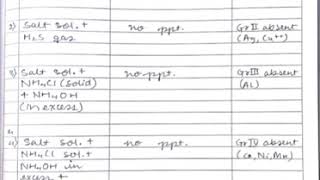 2) Salt sol. + no ppt. Gr II absent
H2S gas (Ag, Cu++)
3) Salt sol. + no ppt. Gr III absent
NH4Cl (solid) (Al)
+ NH4OH
(in excess)
4) Salt sol. + no ppt. Gr IV absent
NH4Cl sol. + (Co, Ni, Mn)
NH4OH in
excess +